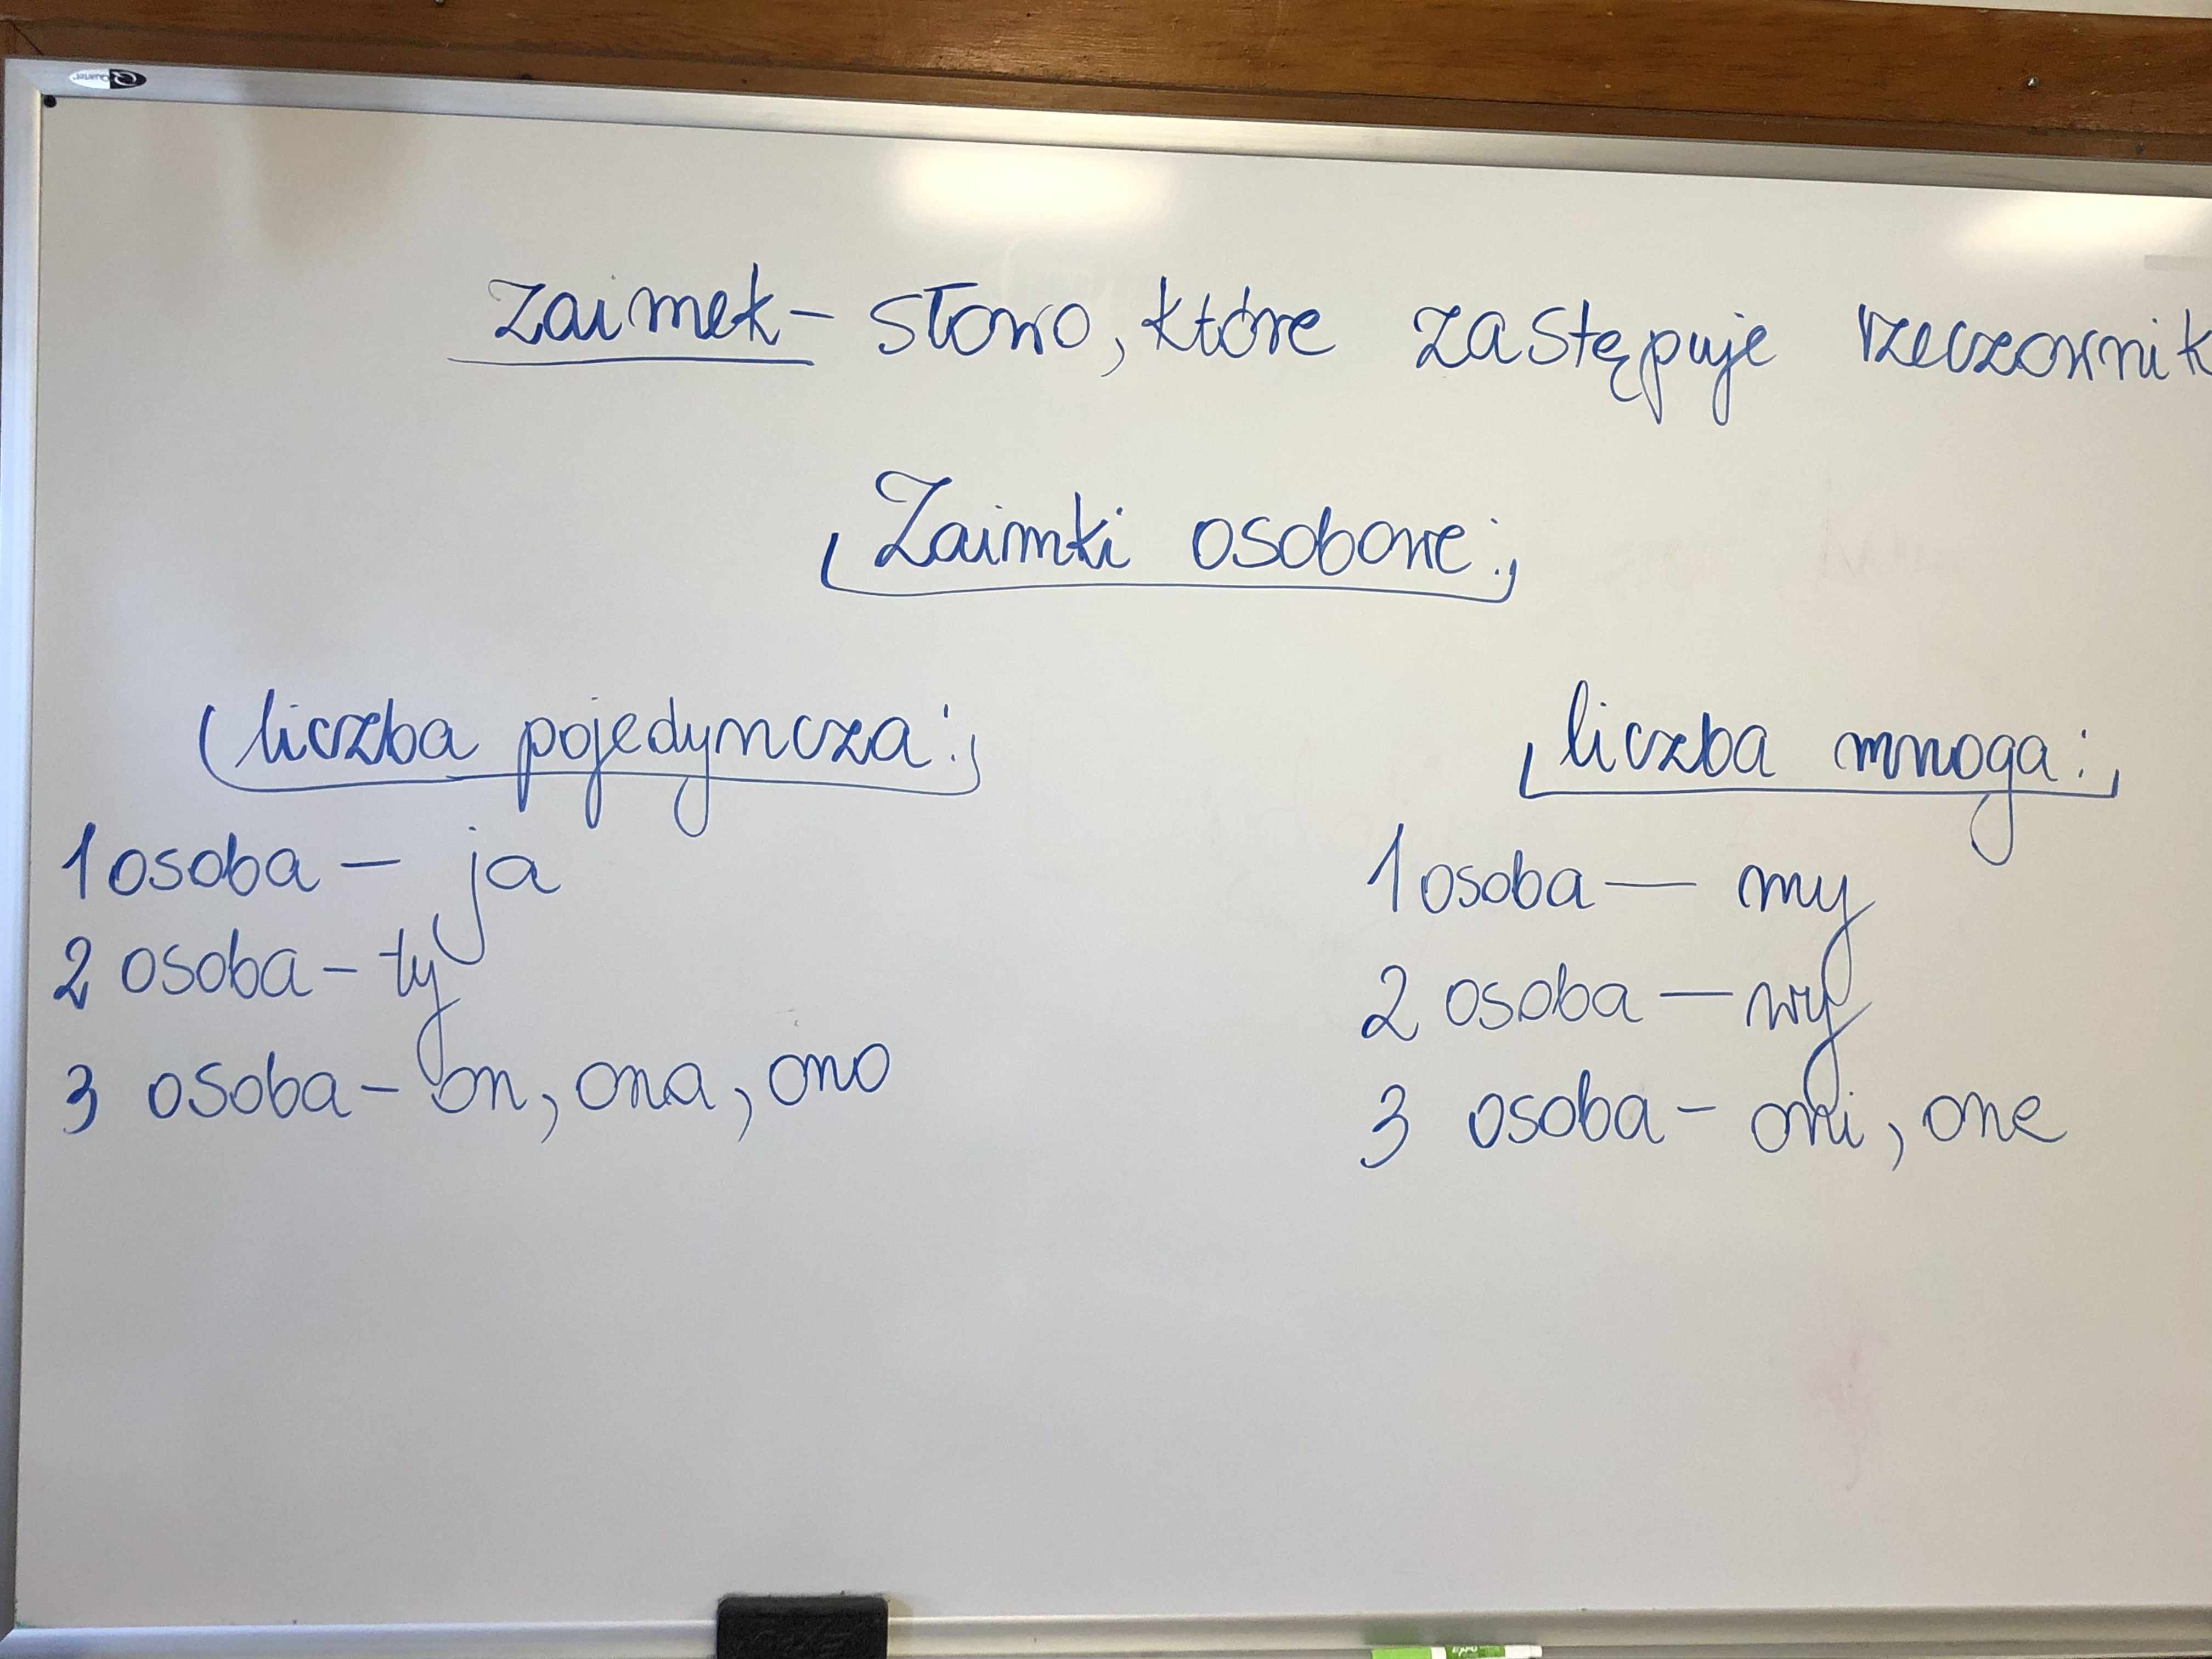 Zaimek - słowo, które zastępuje rzeczownik
Zaimki osobowe:
liczba pojedyncza:
1 osoba - ja
2 osoba - ty
3 osoba - on, ona, ono
liczba mnoga:
1 osoba - my
2 osoba - wy
3 osoba - oni, one
Quartet
EXPO